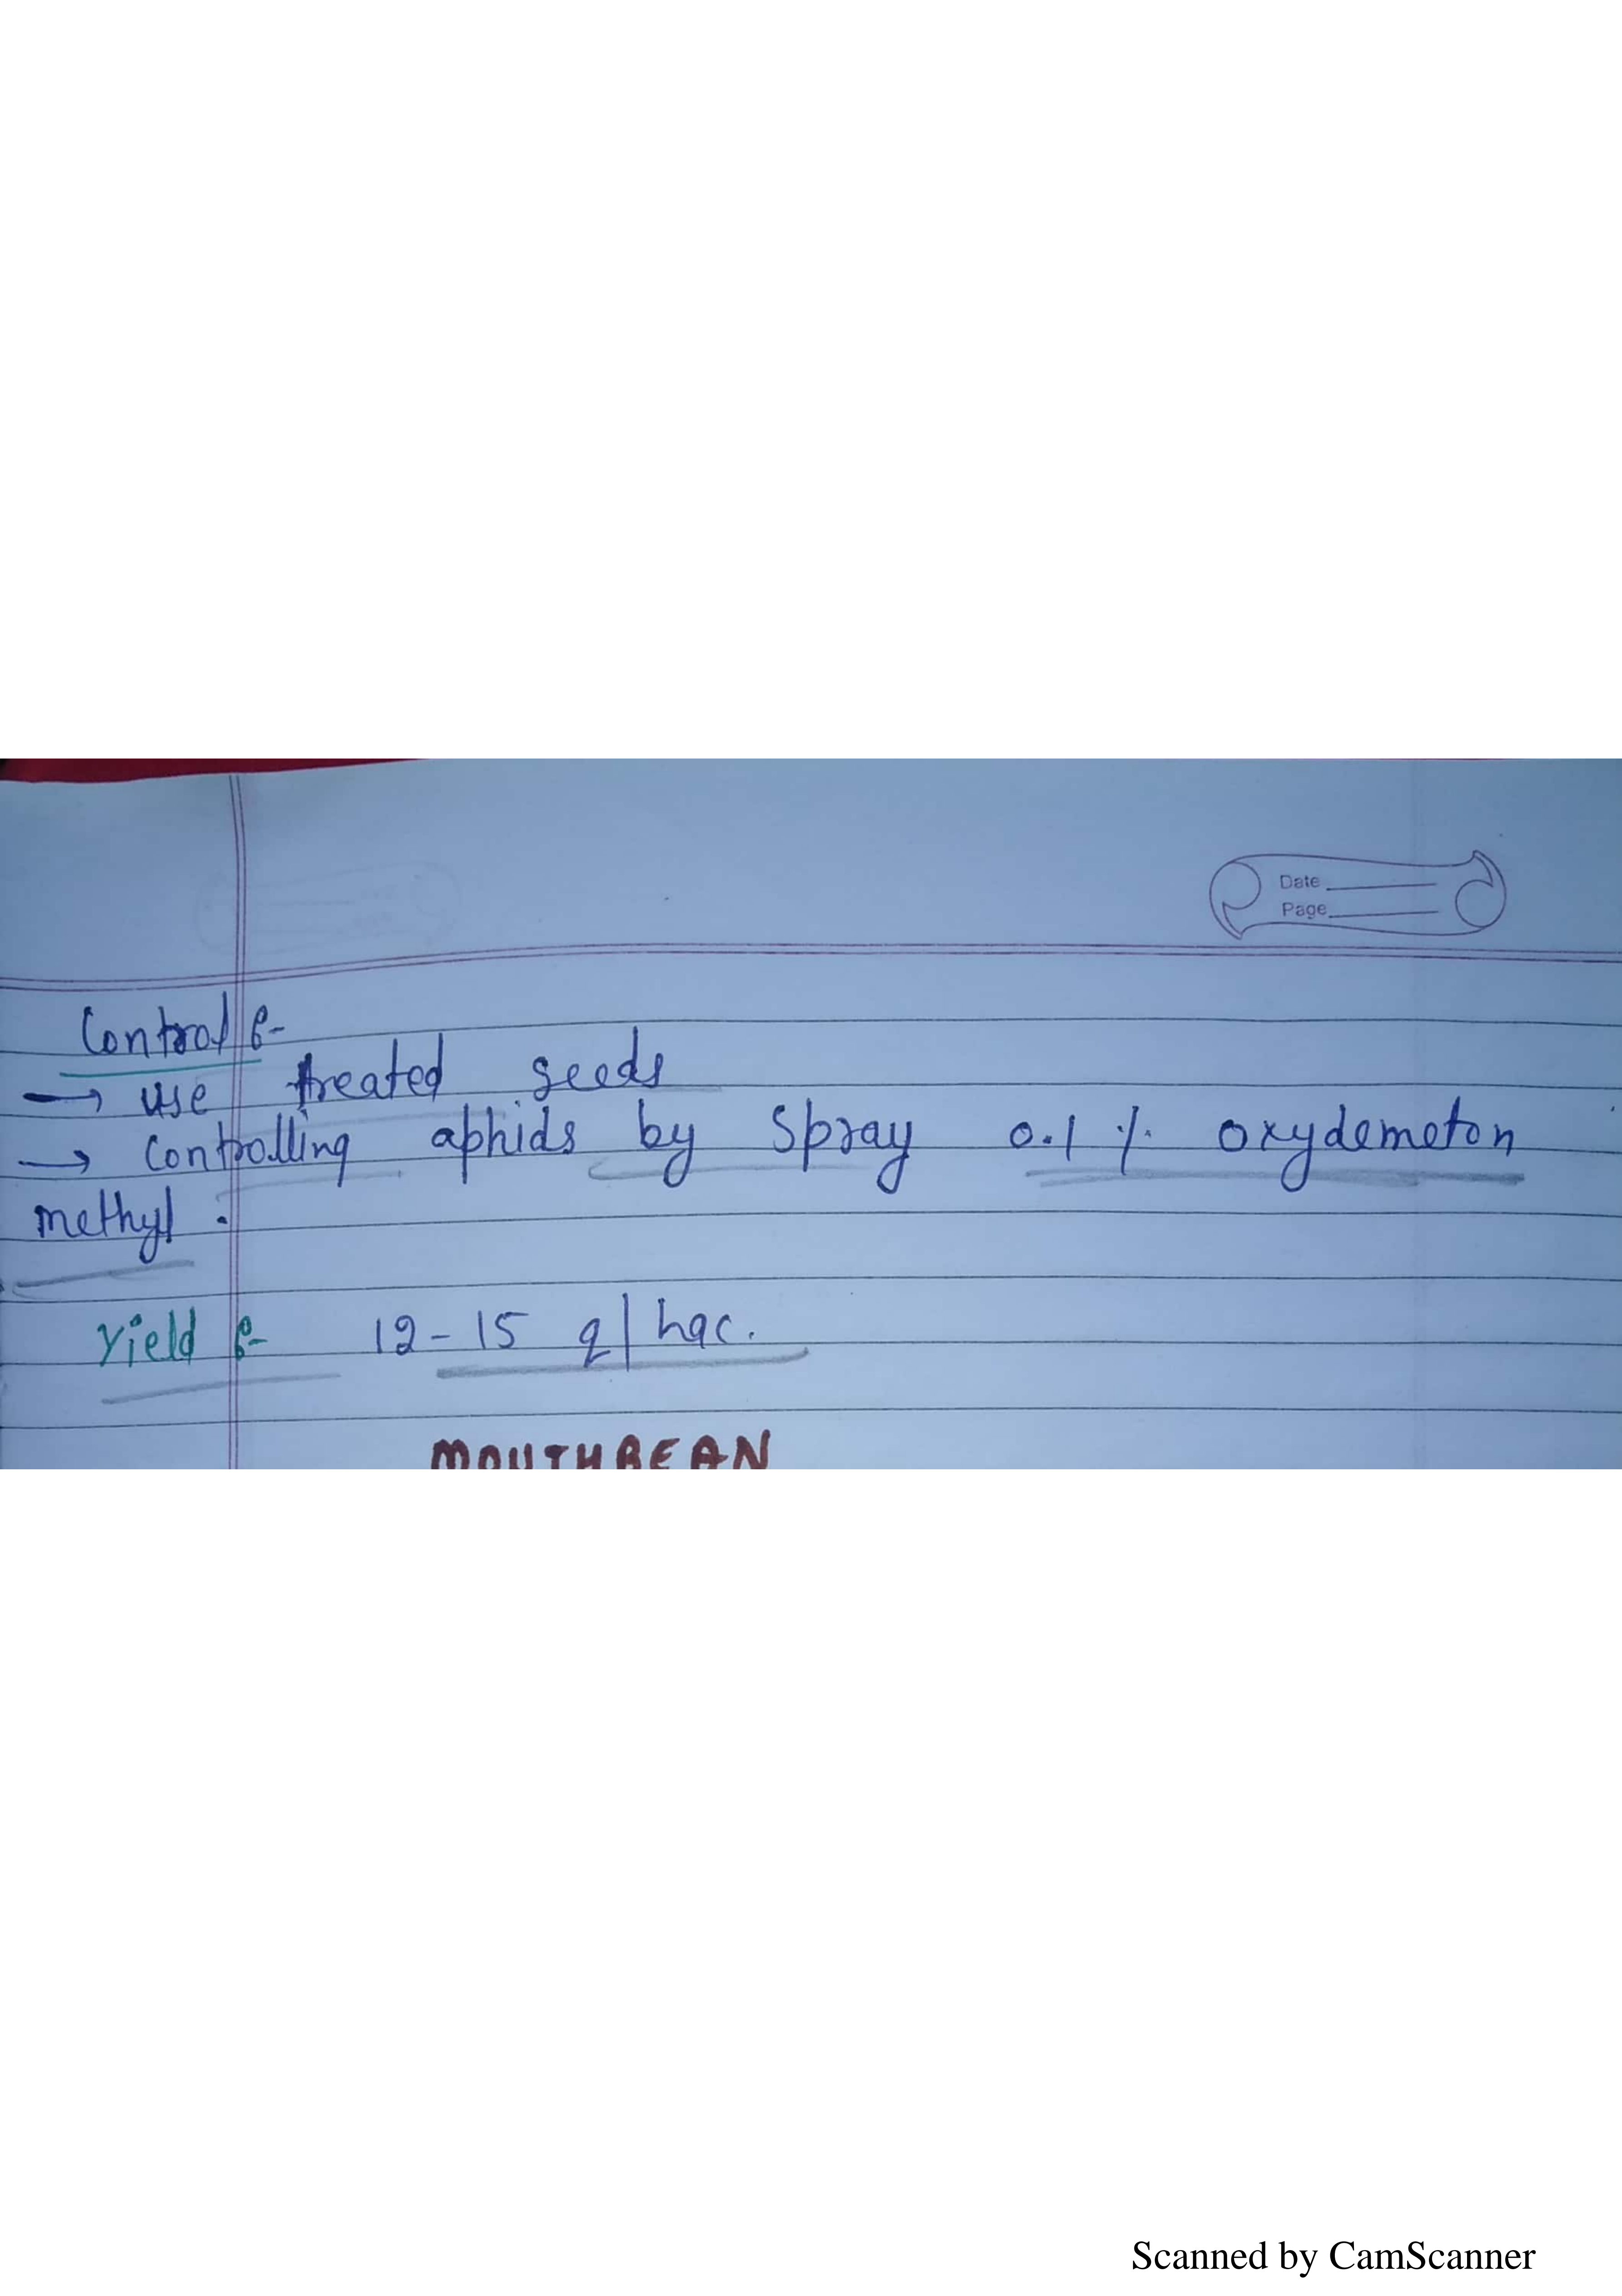 Date
Page
Control :-
→ use treated seeds
→ Controlling aphids by Spray 0.1 % oxydemeton
methyl .
Yield :- 12-15 q/hac.
MOUTHBEAN
Scanned by CamScanner